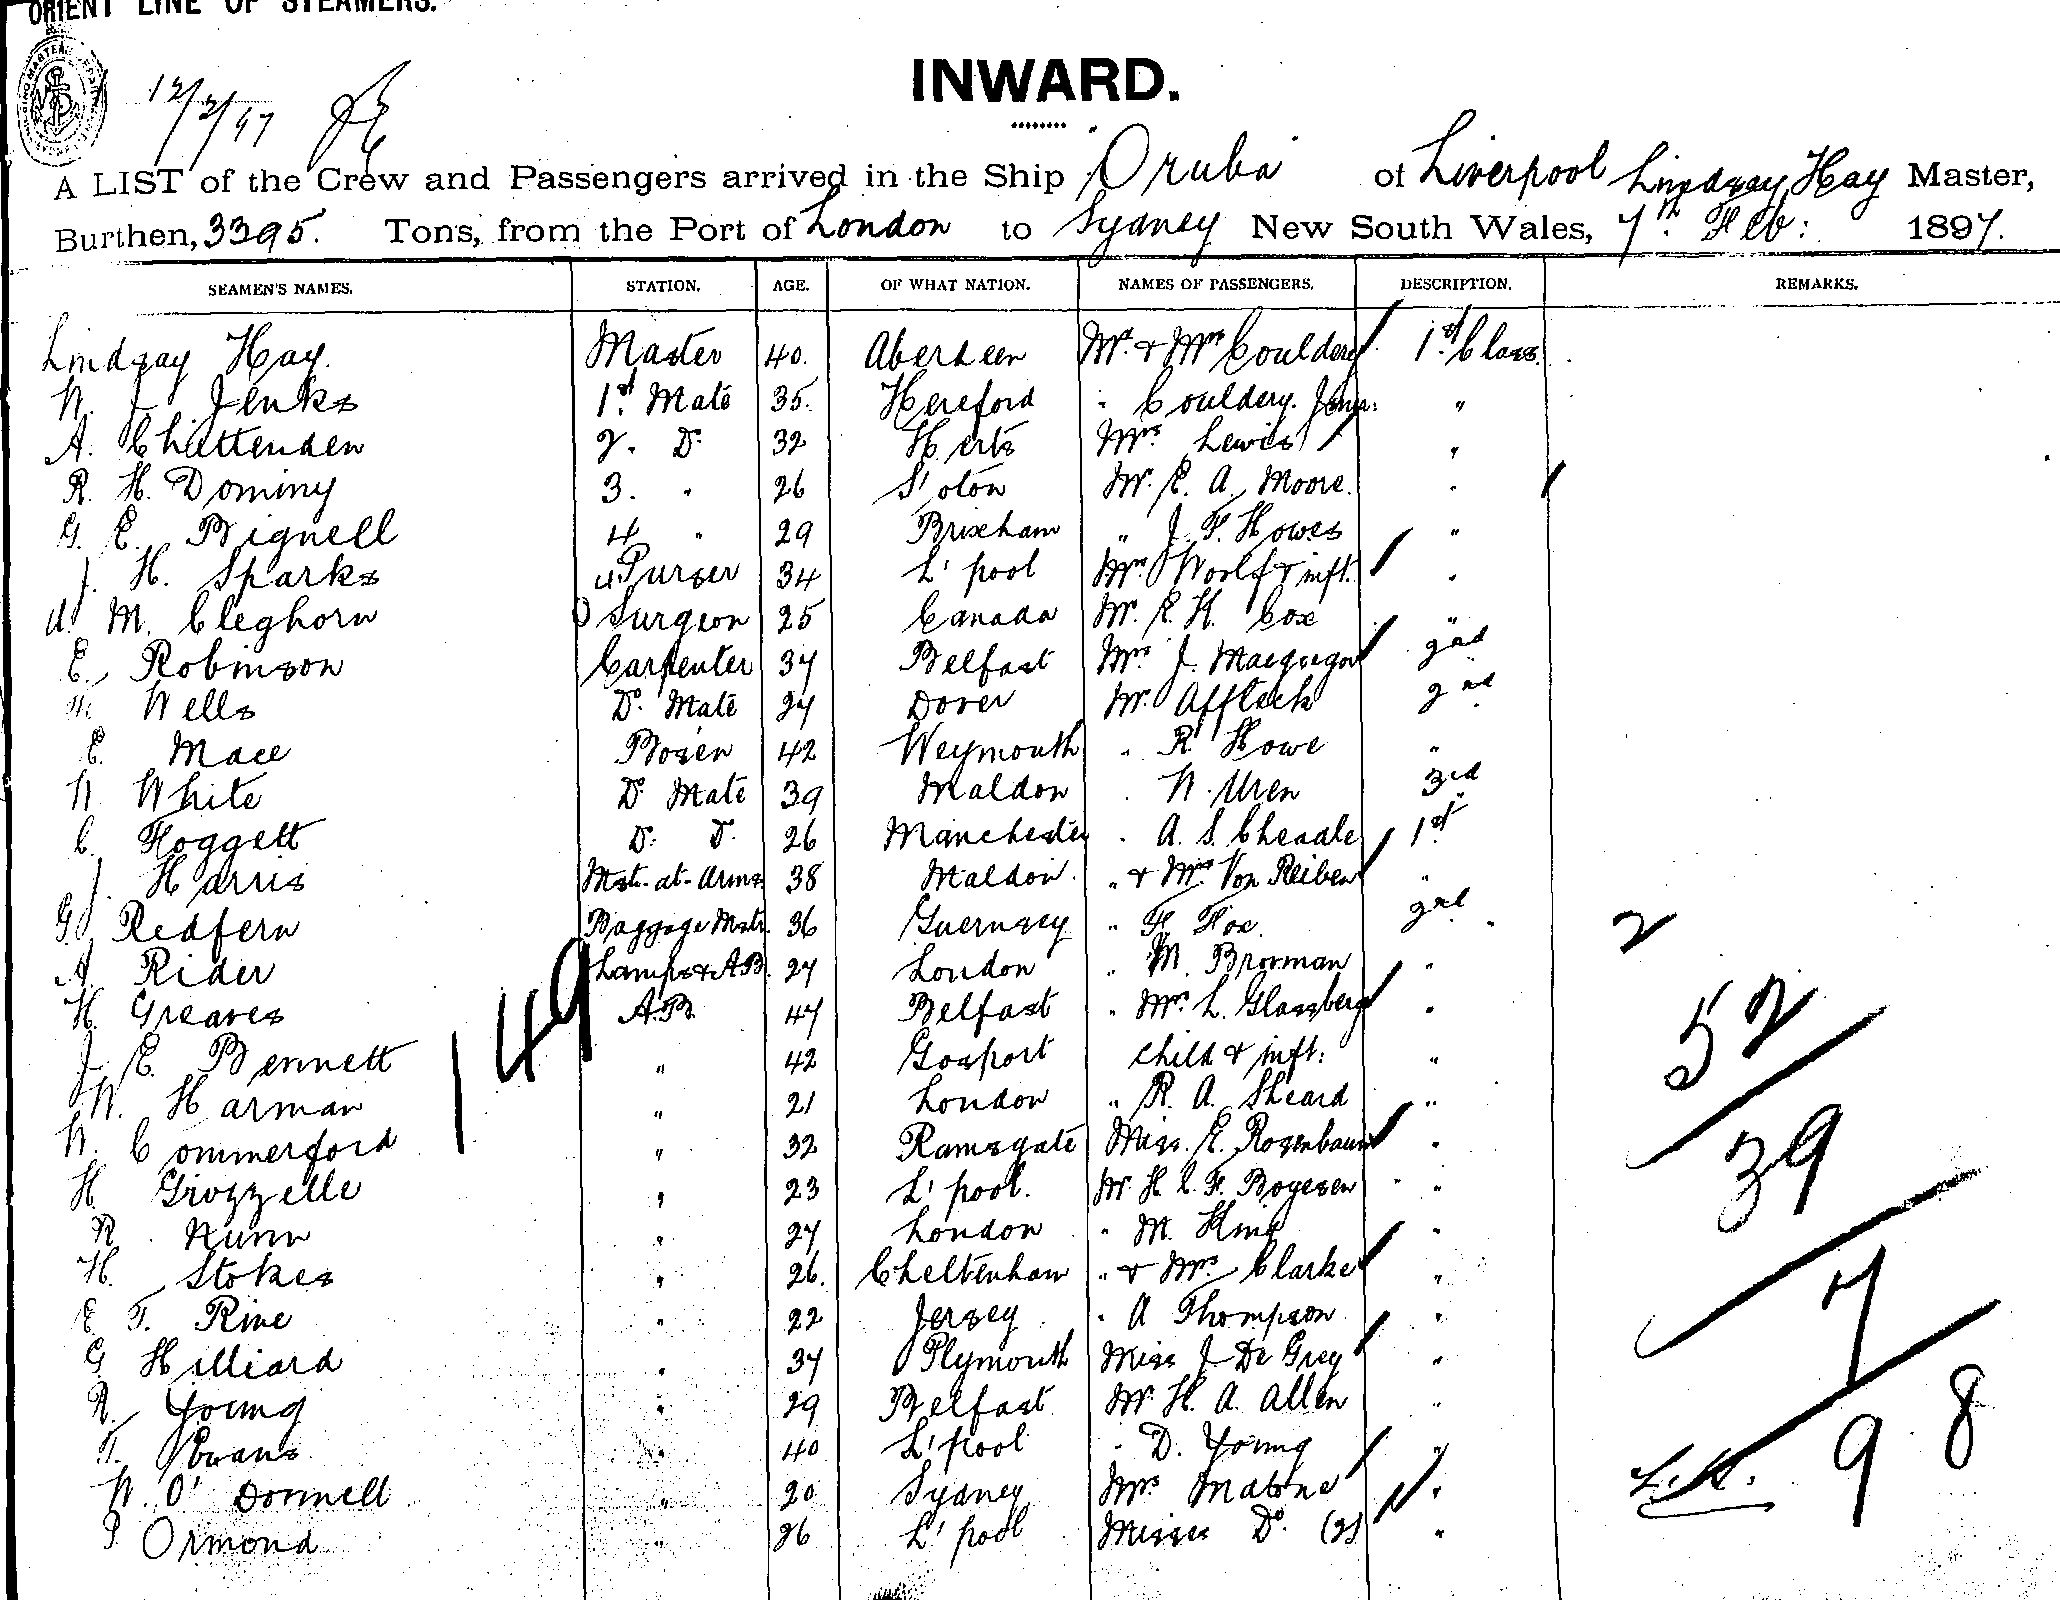 ORIENT LINE OF STEAMERS.
12/2/97
INWARD.
A LIST of the Crew and Passengers arrived in the Ship Oruba of Liverpool Lindsay Hay Master,
Burthen, 3395. Tons, from the Port of London to Sydney New South Wales, 7th Feb: 1897.
SEAMEN'S NAMES. STATION. AGE. OF WHAT NATION. NAMES OF PASSENGERS. DESCRIPTION. REMARKS.
Lindsay Hay. Master 40. Aberdeen Mr. & Mrs Couldery 1st Class.
W. J. Jenks 1st. Mate 35. Hereford " Couldery. Junr: "
A. Chittenden 2. Do. 32 Herts Mrs. Lewis "
R. H. Dominy 3. " 26 S'oton Mr. E. A. Moore. "
G. E. Bignell 4 " 29 Brixham " J. F. Howes "
J. H. Sparks Purser 34 L'pool Mrs. Woolf & inft. "
A. M. Cleghorn Surgeon 25 Canada Mr. E. H. Cox "
E. Robinson Carpenter 37 Belfast Mrs J. Macgregor 2nd
W. Wells Do. Mate 27 Dover Mr. Affleck 2nd
E. Mace Bosen 42 Weymouth " R Howe "
W. White Do Mate 39 Maldon " W. Uren 3rd
C. Hoggett Do. Do. 26 Manchester " A. S. Cheadle 1st
J. Harris Mstr-at-Arms 38 Maldon. " & Mrs Von Reiben "
G. J. Redfern Baggage Mstr. 36 Guernsey " F. Fox. 2nd
A. Rider Lamps & AB. 27 London " M. Browman "
H. Greaves A.B. 47 Belfast " Mrs. L. Glassberg "
J. E. Bennett " 42 Gosport child & inft: "
W. Harman " 21 London " R. A. Sheard "
W. Commerford " 32 Ramsgate Miss. E. Rosenbaum "
H Grozzelle " 23 L'pool. Mr. H. E. F. Boyesen "
R. Nunn " 27 London " M. King "
H. Stokes " 26. Cheltenham " & Mrs. Clarke "
E. T. Rive " 22 Jersey " A Thompson "
G Hilliard " 37 Plymouth Miss J De Grey "
R. Young " 29 Belfast Mr. H. A. Allen "
T. Evans " 40 L'pool " D. Young "
W. O'Donnell " 20 Sydney Mrs Malone "
P Ormond " 26 L'pool Misses Do. (2) "
149
2
52
39
7
98